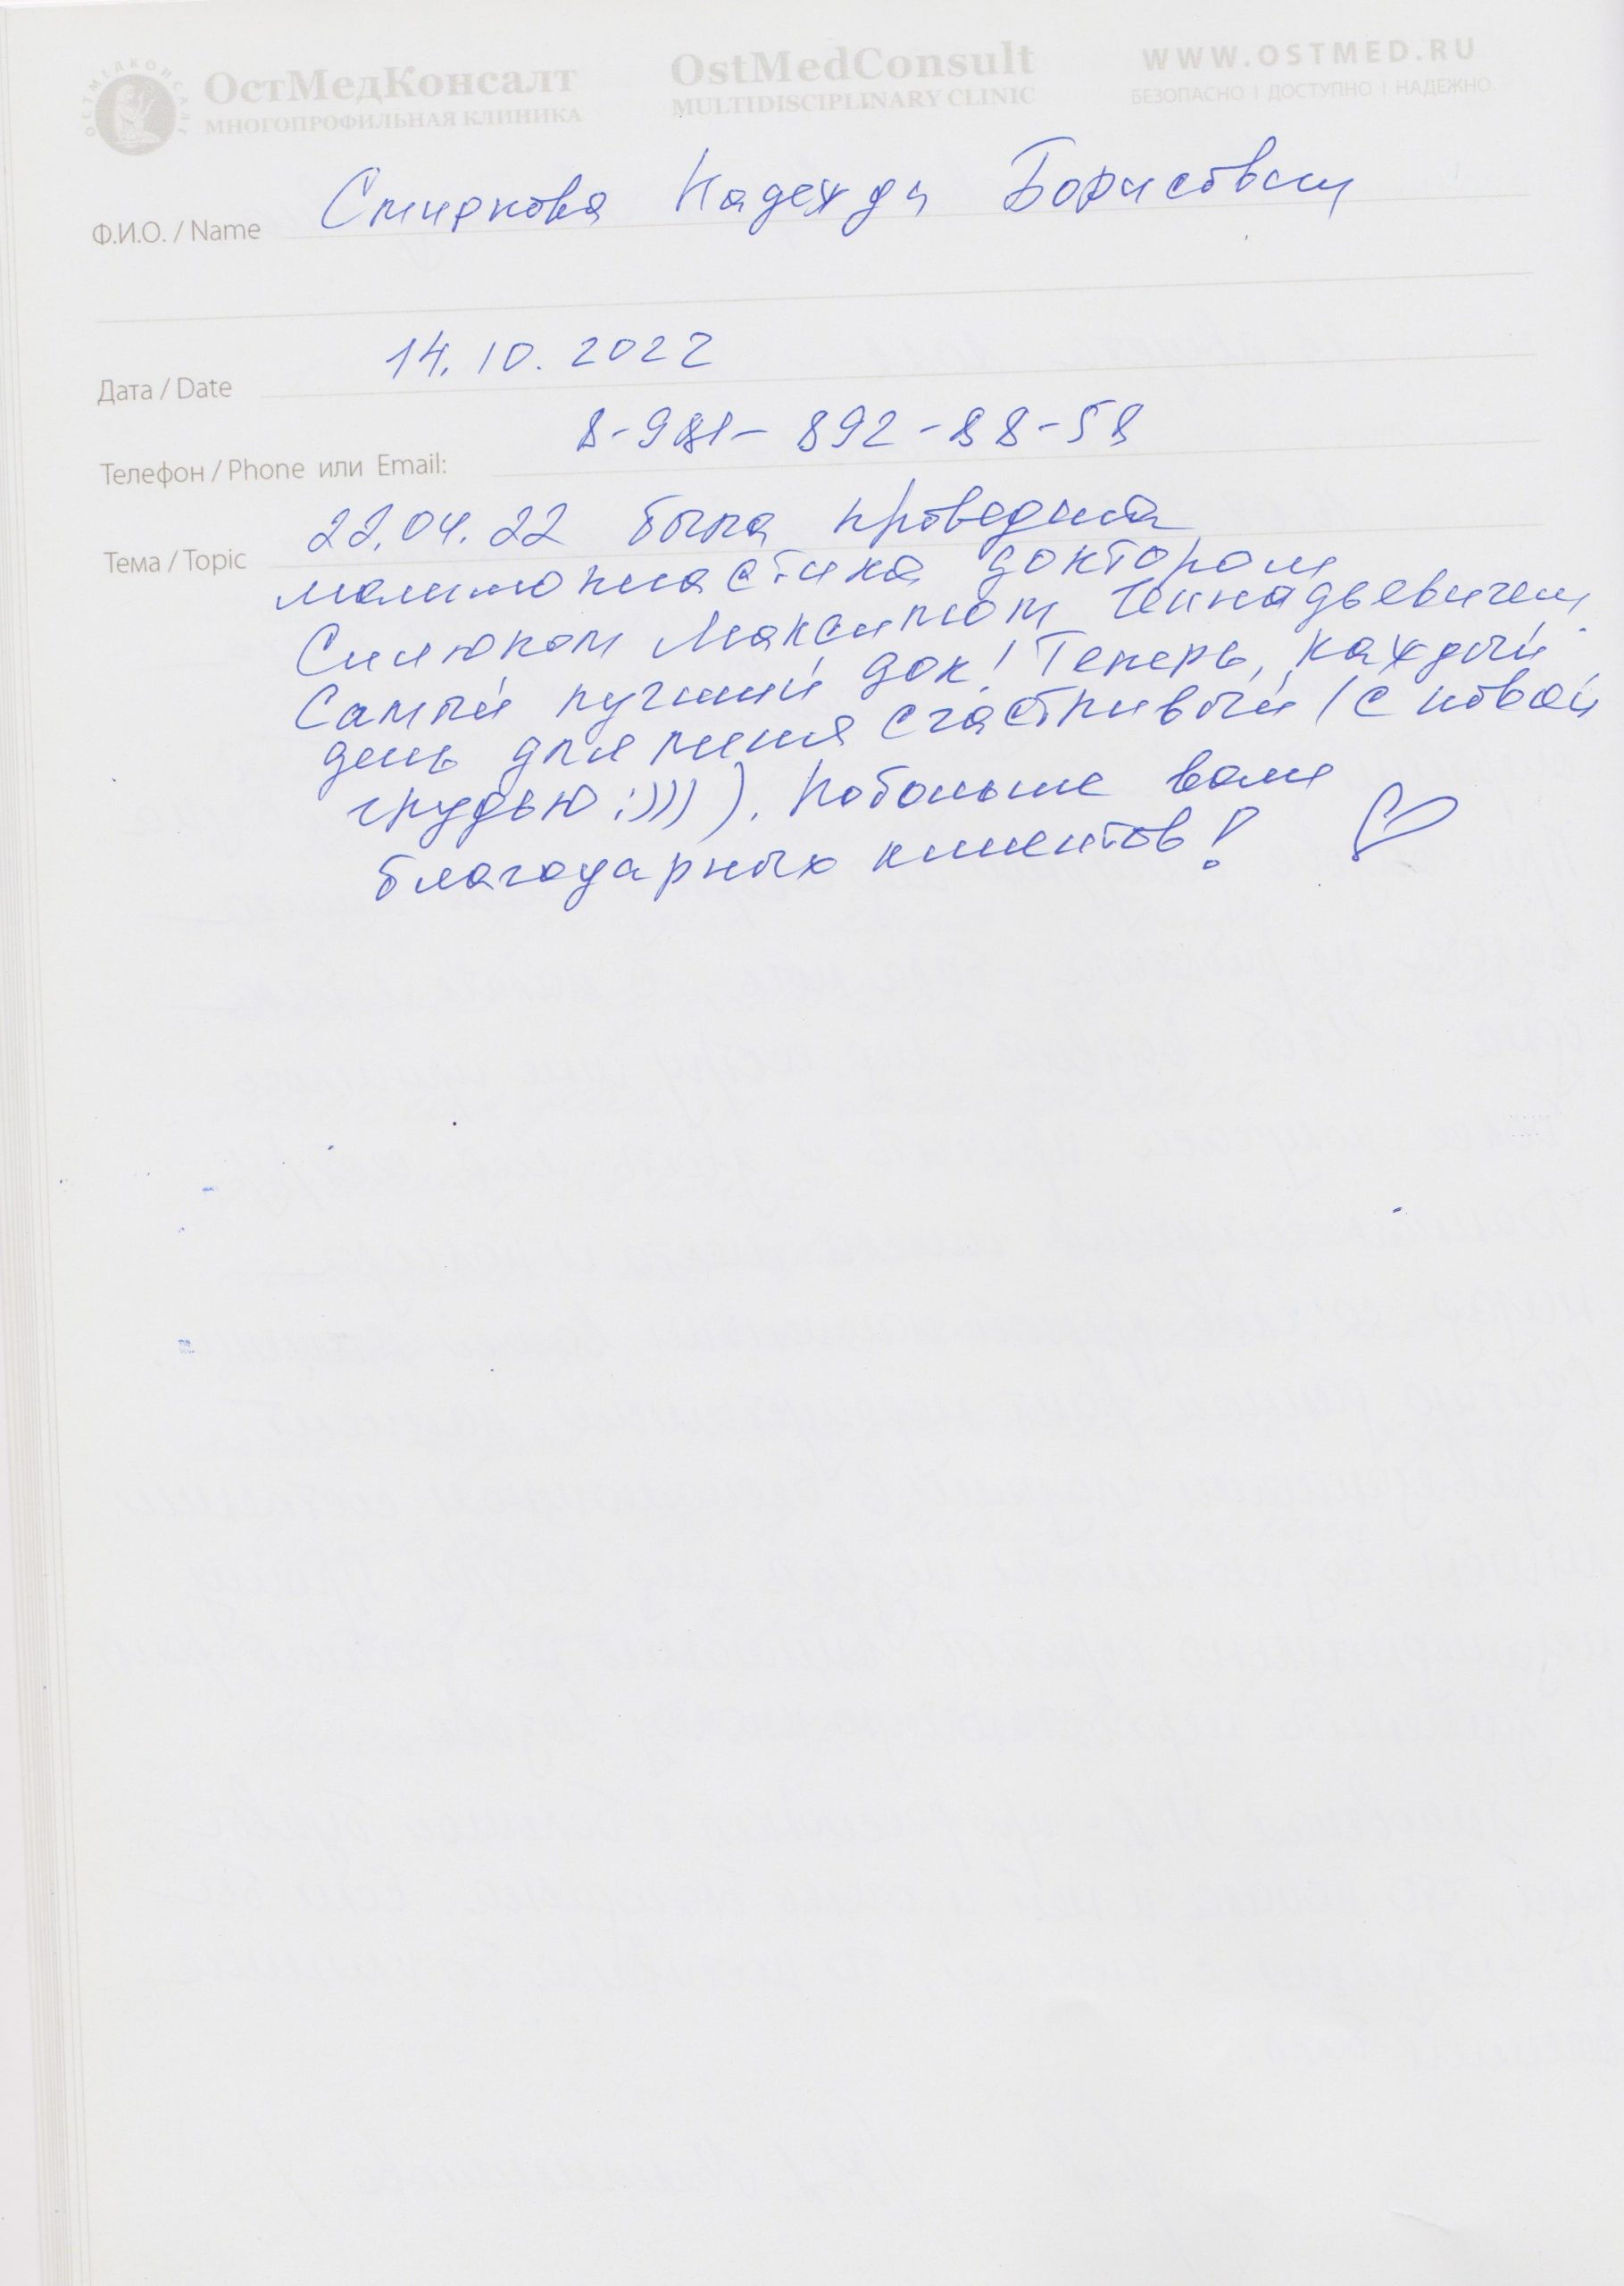 ОСТМЕДКОНСАЛТ
ОстМедКонсалт
МНОГОПРОФИЛЬНАЯ КЛИНИКА
OstMedConsult
MULTIDISCIPLINARY CLINIC
WWW.OSTMED.RU
БЕЗОПАСНО | ДОСТУПНО | НАДЕЖНО
Ф.И.О. / Name Смирнова Надежда Борисовна
Дата / Date 14.10.2022
Телефон / Phone или Email: 8-981-892-88-58
Тема / Topic 22.04.22 была проведена
маммопластика доктором
Силюком Максимом Геннадьевичем,
Самый лучший док! Теперь, каждый
день для меня счастливый (с новой
грудью :))) ). Побольше вам
благодарных клиентов!